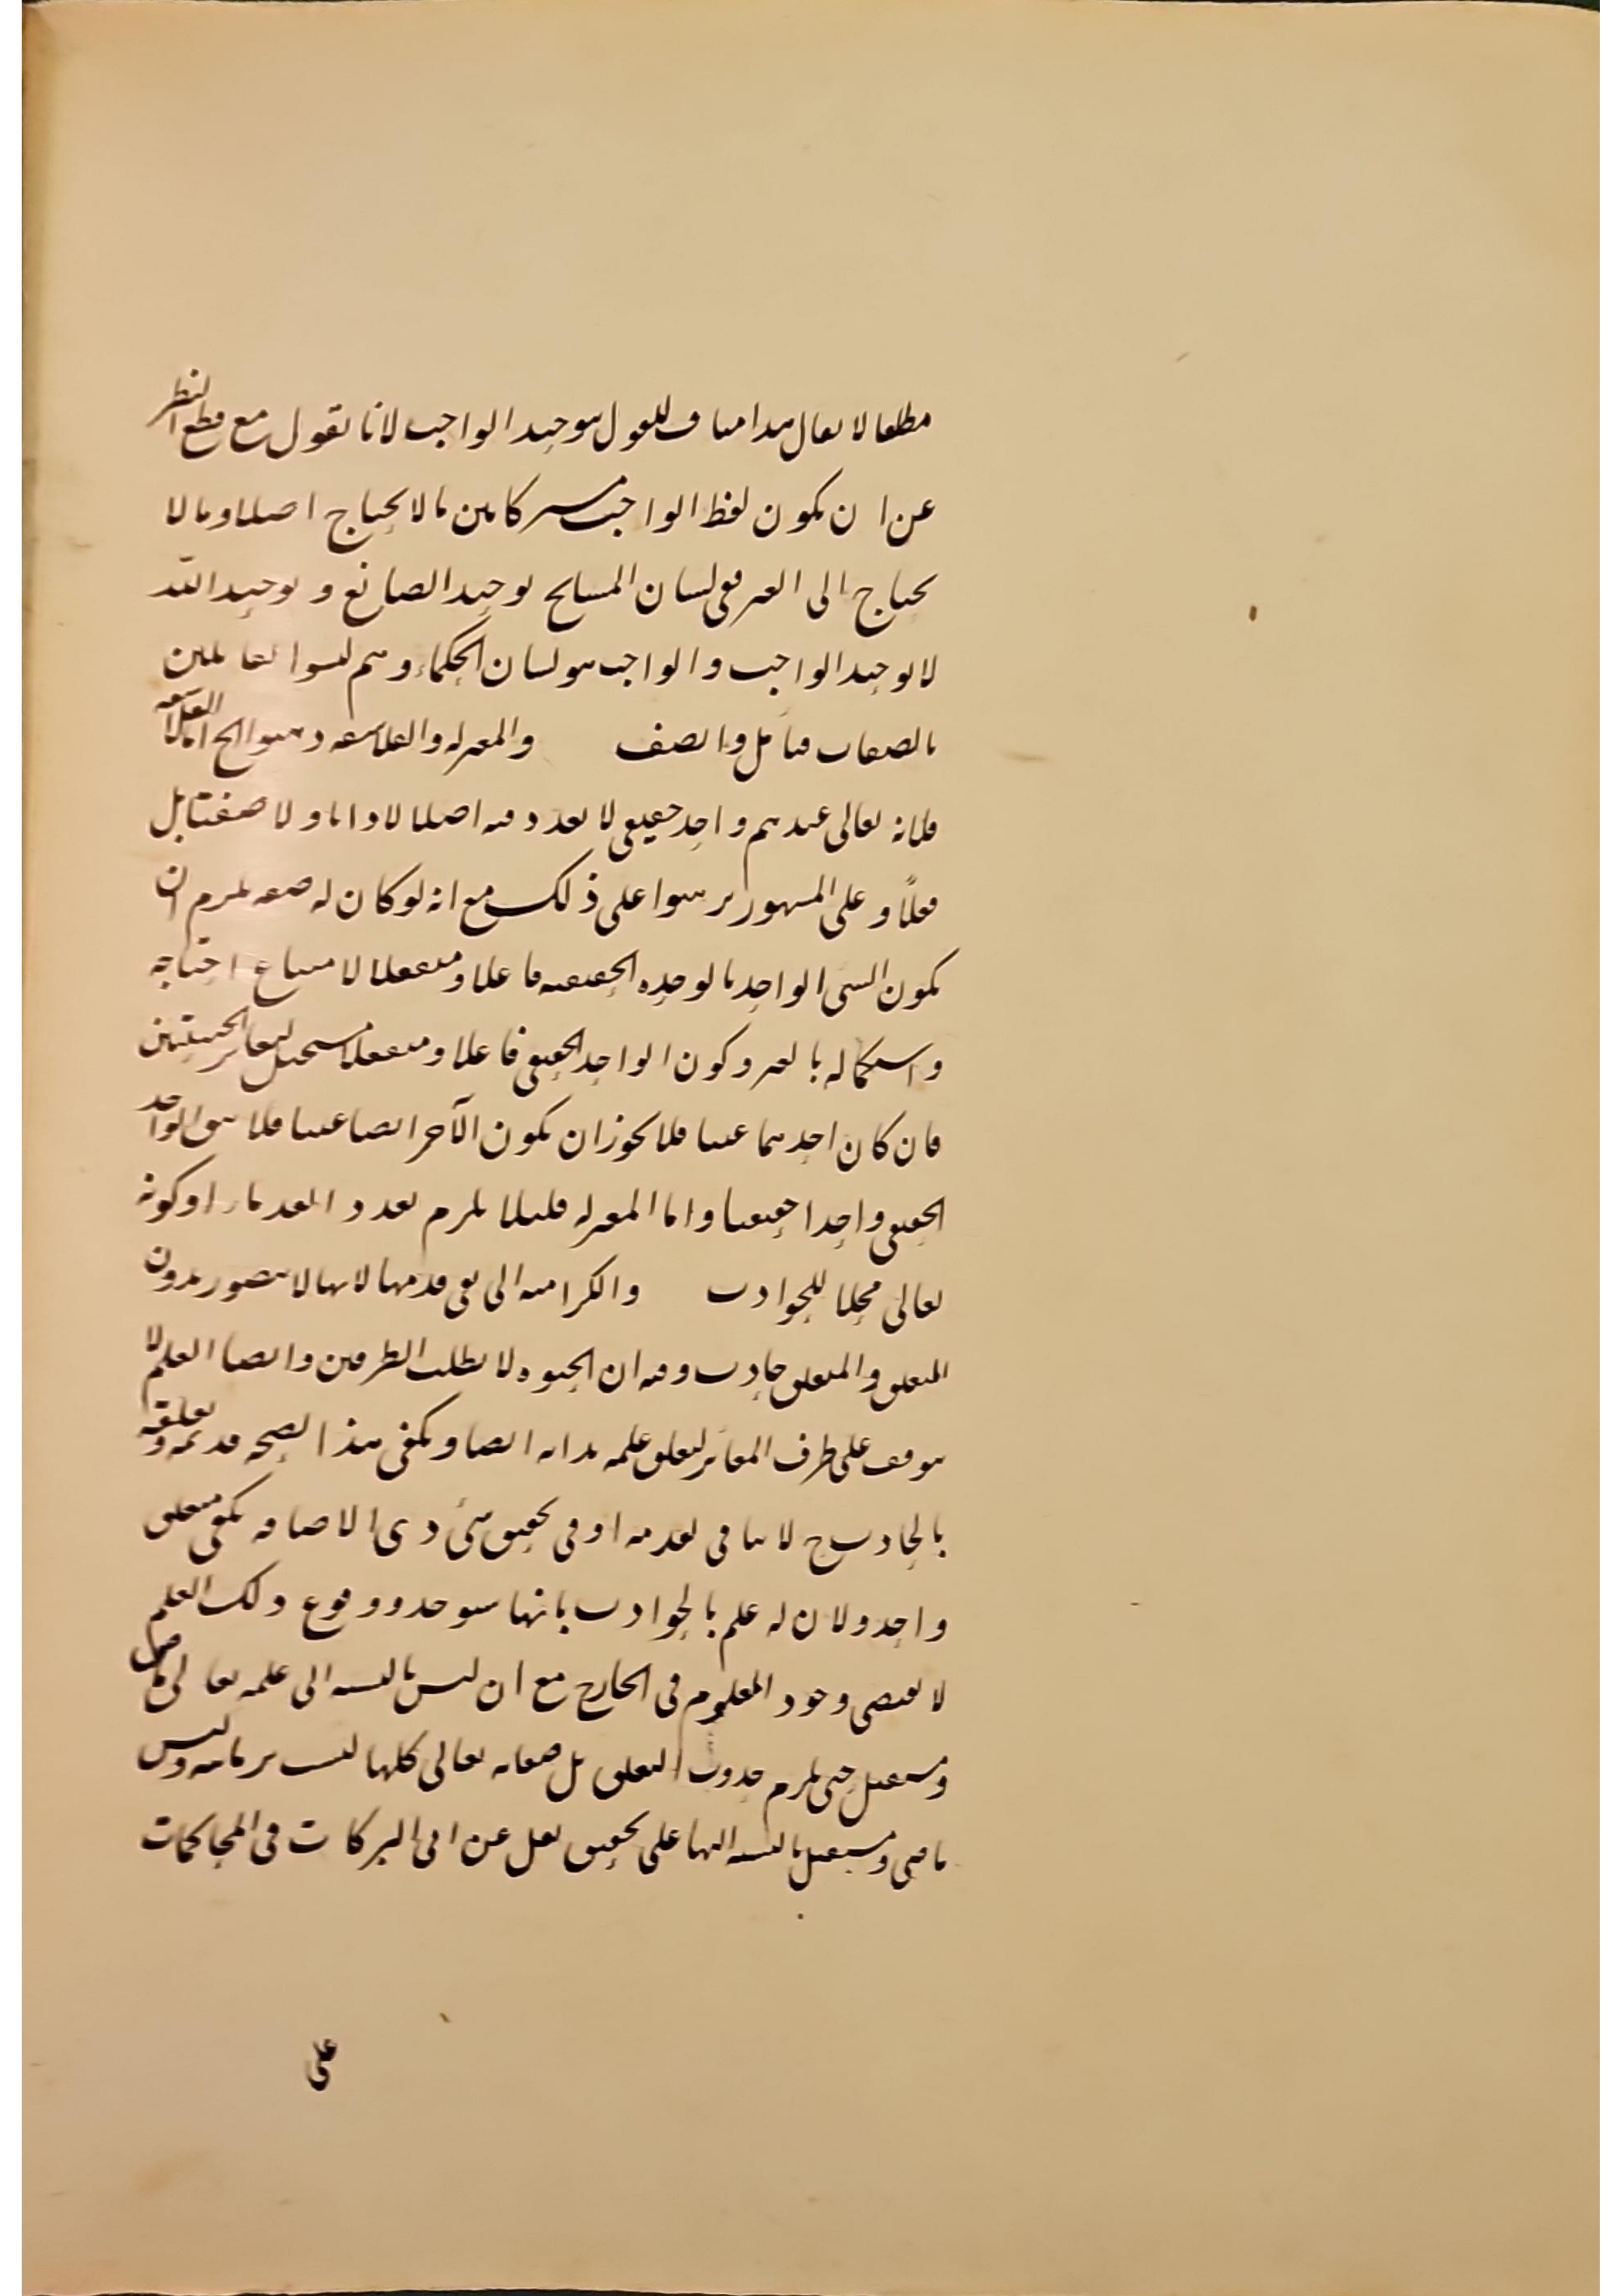 مطلقا لا يقال هذا مناف للقول بتوحيد الواجب لانا نقول مع قطع النظر
عن ان يكون لفظ الواجب مشتركا بين ما لا يحتاج اصلا وما لا
يحتاج الى الغير ففي لسان المشايخ توحيد الصانع و توحيد الله
لا توحيد الواجب و الواجب هو لسان الحكماء وهم ليسوا بقائلين
بالصفات فتأمل وانصف والمعتزلة والفلاسفة ذهبوا الخ اما الفلاسفة
فلانه تعالى عندهم واحد حقيقي لا تعدد فيه اصلا لا ذاتا ولا صفتا بل
فعلاً وعلى المشهور برهنوا على ذلك مع انه لو كان له صفة يلزم ان
يكون الشئ الواحد بالوحدة الحقيقية فاعلا ومنفعلا لامتناع احتياجه
واستكماله بالغير وكون الواحد الحقيقي فاعلا ومنفعلا مستحيل لتغاير الحيثيتين
فان كان احدهما عينا فلا يجوز ان يكون الآخر ايضا عينا فلا يبقى الواحد
الحقيقي واحدا حقيقيا واما المعتزلة فلئلا يلزم تعدد القدماء او كونه
تعالى محلا للحوادث والكرامية الى نفي قدمها لانها لا يتصور بدون
المتعلق والمتعلق حادث وفيه ان الحيوة لا يطلب الطرفين وايضا العلم لا
يتوقف على طرف المغاير لتعلق علمه بذاته ايضا ويكفي هذا لصحة قدمه و تعلقه
بالحادث ح لا ينافي تقدمه او في تحقيق شئ ذي الاضافة يكفي متعلق
واحد ولان له علم بالحوادث بانها ستوجد ووقوع ذلك العلم
لا يقتضي وجود المعلوم في الخارج مع ان ليس بالنسبة الى علمه تعالى ماض
ومستقبل حتى يلزم حدوث التعلق بل صفاته تعالى كلها ليست بزمانية وليس
ماضي ومستقبل بالنسبة اليها على تحقيق نقل عن ابي البركات في المحاكمات
على